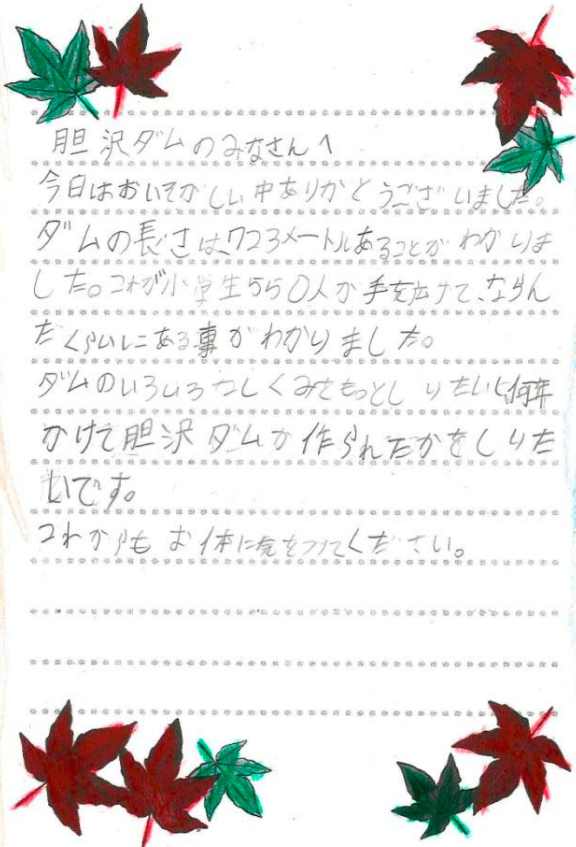 胆沢ダムのみなさんへ
今日はおいそがしい中ありがとうございました。
ダムの長さは、723メートルあることがわかりま
した。これが小学生550人が手を広げて、ならん
だくらいにある事がわかりました。
ダムのいろいろなしくみをもっとしりたいと何年
かけて胆沢ダムが作られたかをしりた
いです。
これからもお体に気をつけてください。